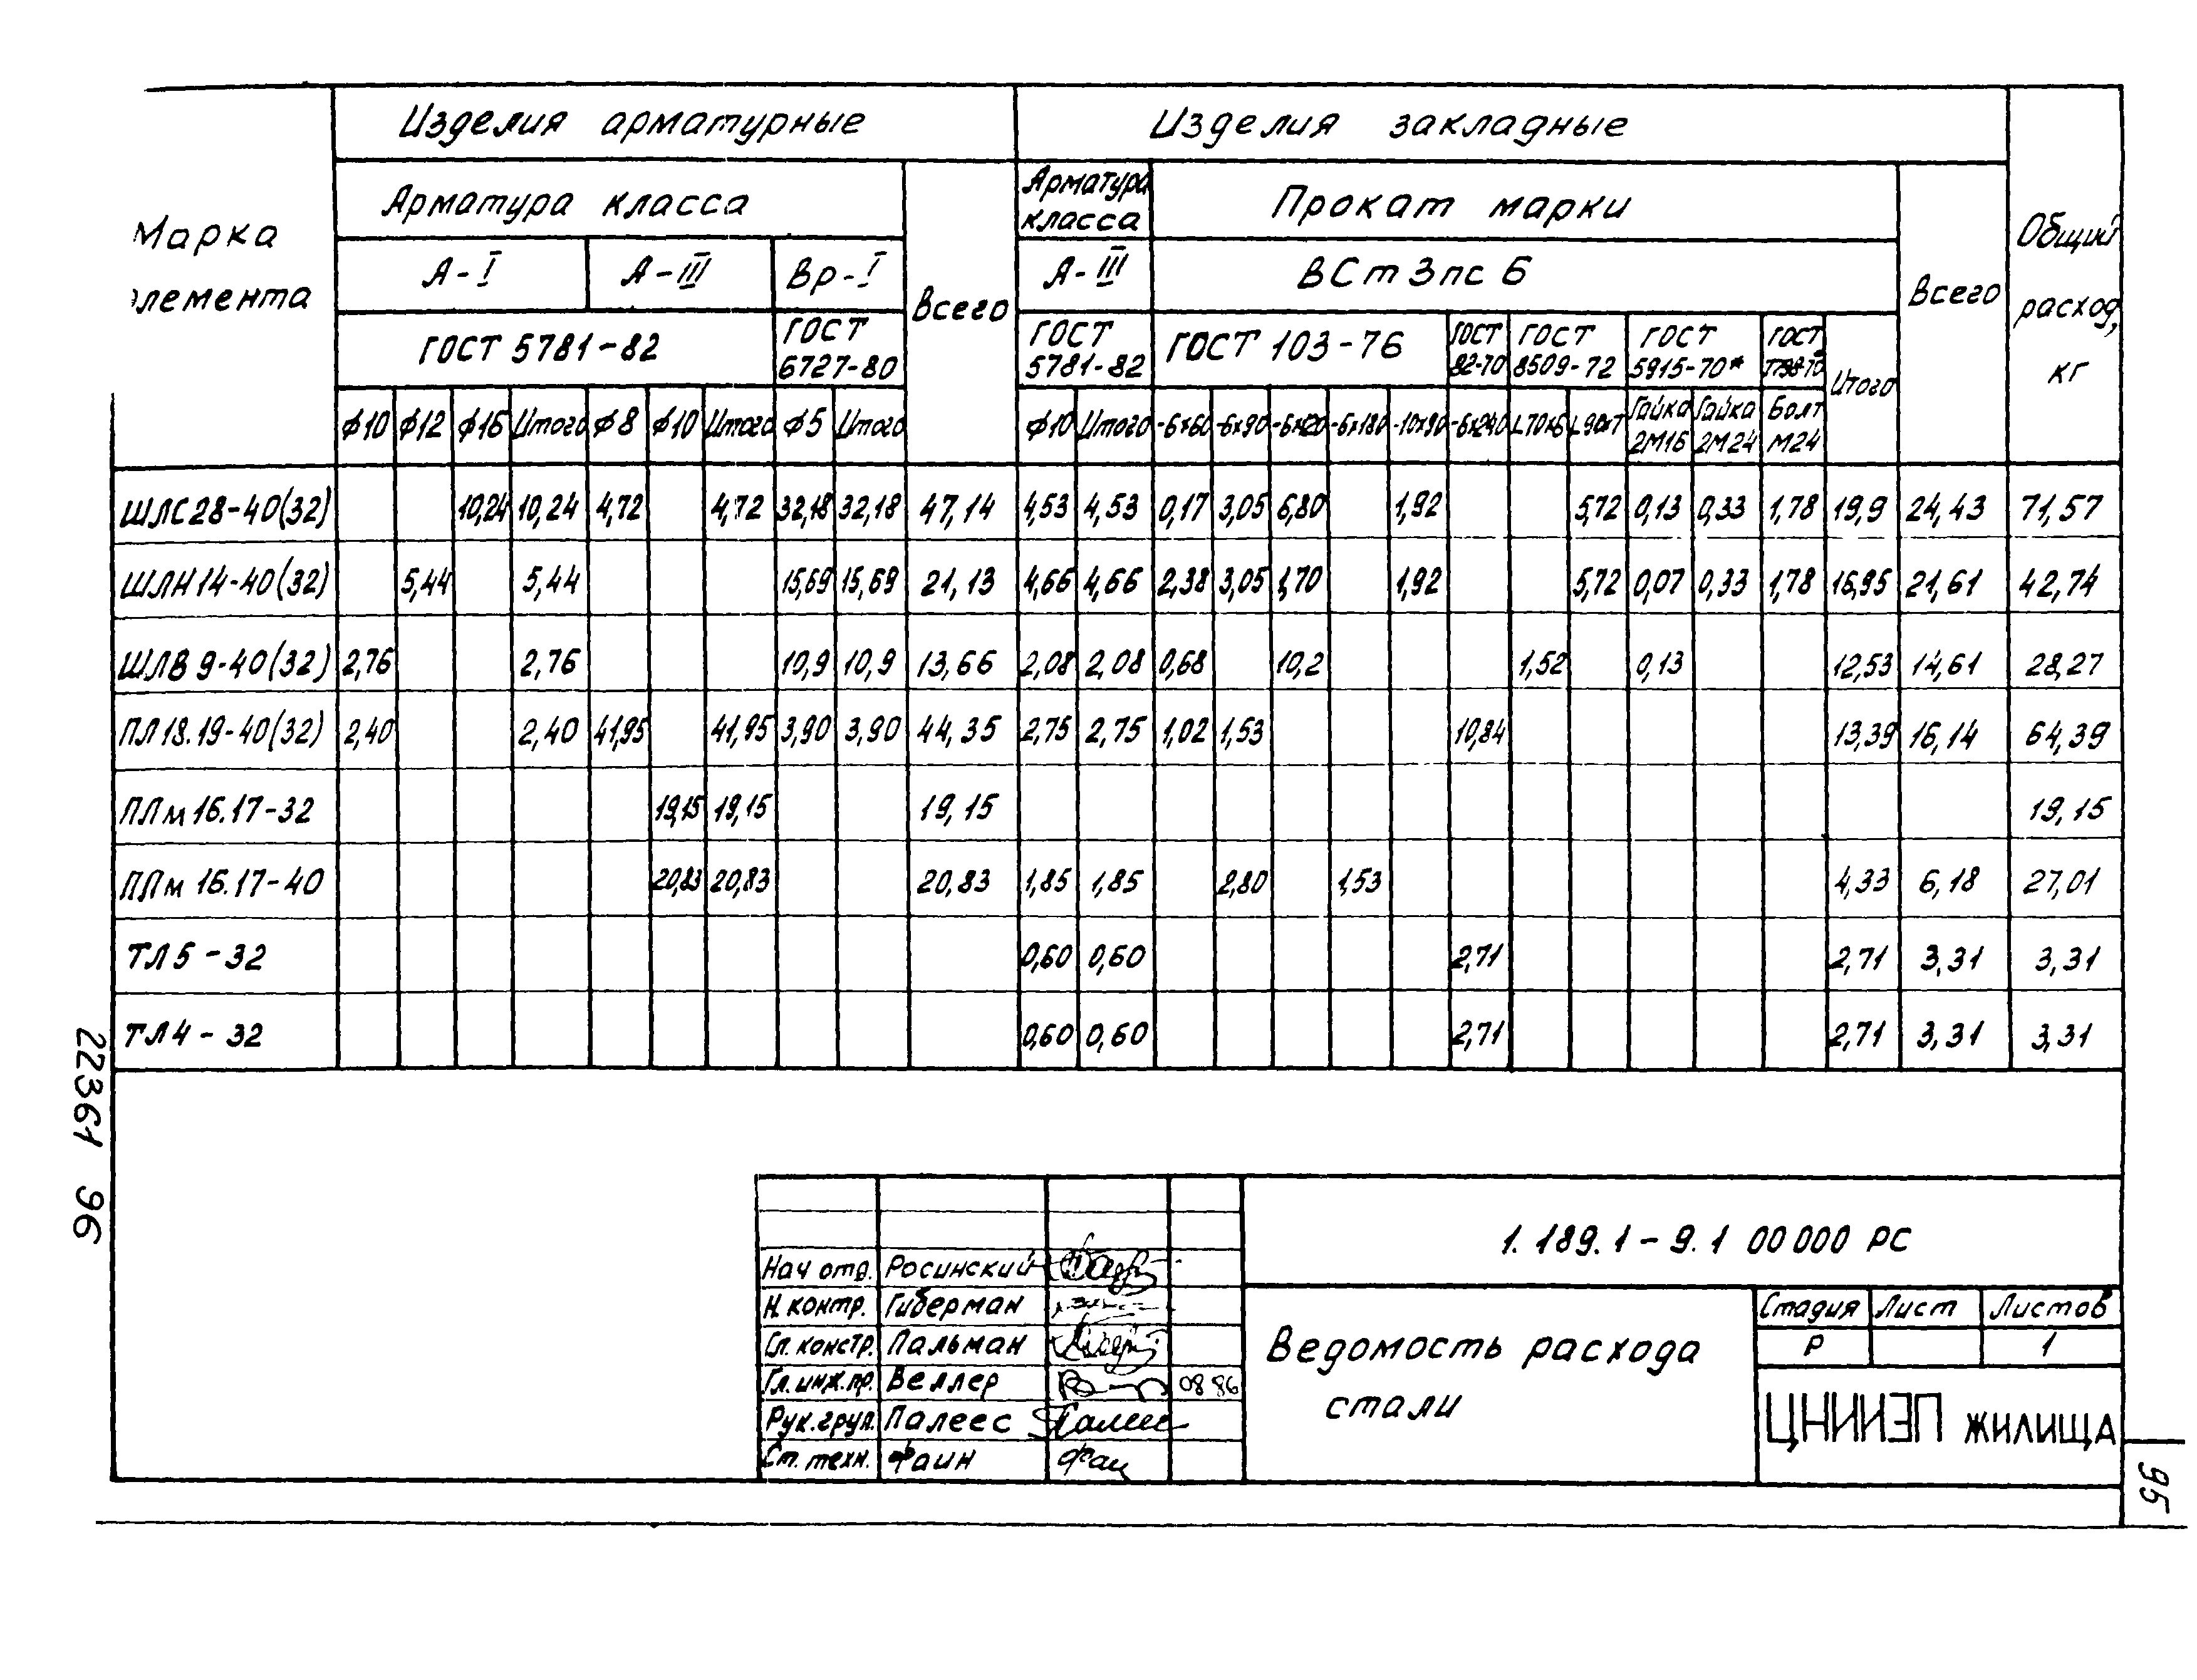 Изделия арматурные Изделия закладные
Марка элемента Арматура класса Всего Арматура класса Прокат марки Всего Общий расход, кг
А-I А-III Вр-I А-III ВСт3пс6
ГОСТ 5781-82 ГОСТ 6727-80 ГОСТ 5781-82 ГОСТ 103-76 ГОСТ 82-70 ГОСТ 8509-72 ГОСТ 5915-70* ГОСТ Итого
ф10 ф12 ф16 Итого ф8 ф10 Итого ф5 Итого ф10 Итого -6х60 -6х90 -6х120 -6х180 -10х90 -6х240 L70х6 L90х7 Гайка 2М16 Гайка 2М24 Болт М24
ШЛС28-40(32) 10,24 10,24 4,72 4,72 32,18 32,18 47,14 4,53 4,53 0,17 3,05 6,80 1,92 5,72 0,13 0,33 1,78 19,9 24,43 71,57
ШЛН14-40(32) 5,44 5,44 15,69 15,69 21,13 4,66 4,66 2,38 3,05 1,70 1,92 5,72 0,07 0,33 1,78 16,95 21,61 42,74
ШЛВ 9-40(32) 2,76 2,76 10,9 10,9 13,66 2,08 2,08 0,68 10,2 1,52 0,13 12,53 14,61 28,27
ПЛ18.19-40(32) 2,40 2,40 41,95 41,95 3,90 3,90 44,35 2,75 2,75 1,02 1,53 10,84 13,39 16,14 64,39
ПЛм16.17-32 19,15 19,15 19,15 19,15
ПЛм 16.17-40 20,83 20,83 20,83 1,85 1,85 2,80 1,53 4,33 6,18 27,01
ТЛ5-32 0,60 0,60 2,71 2,71 3,31 3,31
ТЛ4-32 0,60 0,60 2,71 2,71 3,31 3,31
22361 96
1.189.1-9.1 00000 РС
Нач отд. Росинский
Н.контр. Гиберман
Гл.констр. Пальман
Гл.инж.пр. Веллер 08 86
Рук.груп. Палеес
Ст.техн. Фаин
Ведомость расхода
стали
Стадия Лист Листов
Р 1
ЦНИИЭП ЖИЛИЩА
95